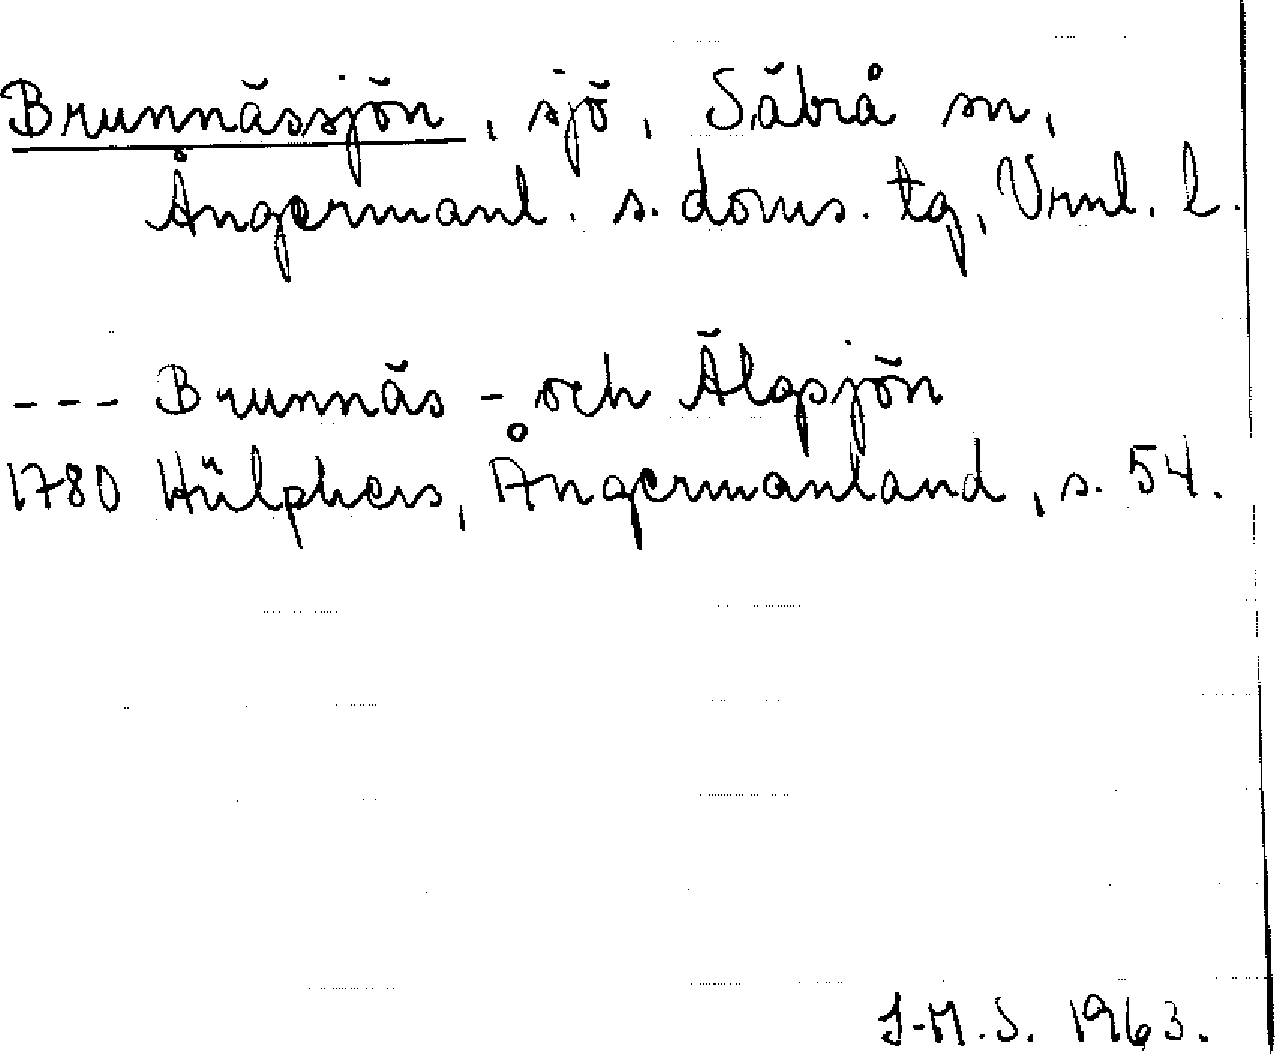 Brunnässjön, sjö, Säbrå sn,
Ångermanl. s. doms. tg, Vrnl. l.
--- Brunnäs- och Älgsjön
1780 Hülphers, Ångermanland, s. 54.
J-M.S. 1963.